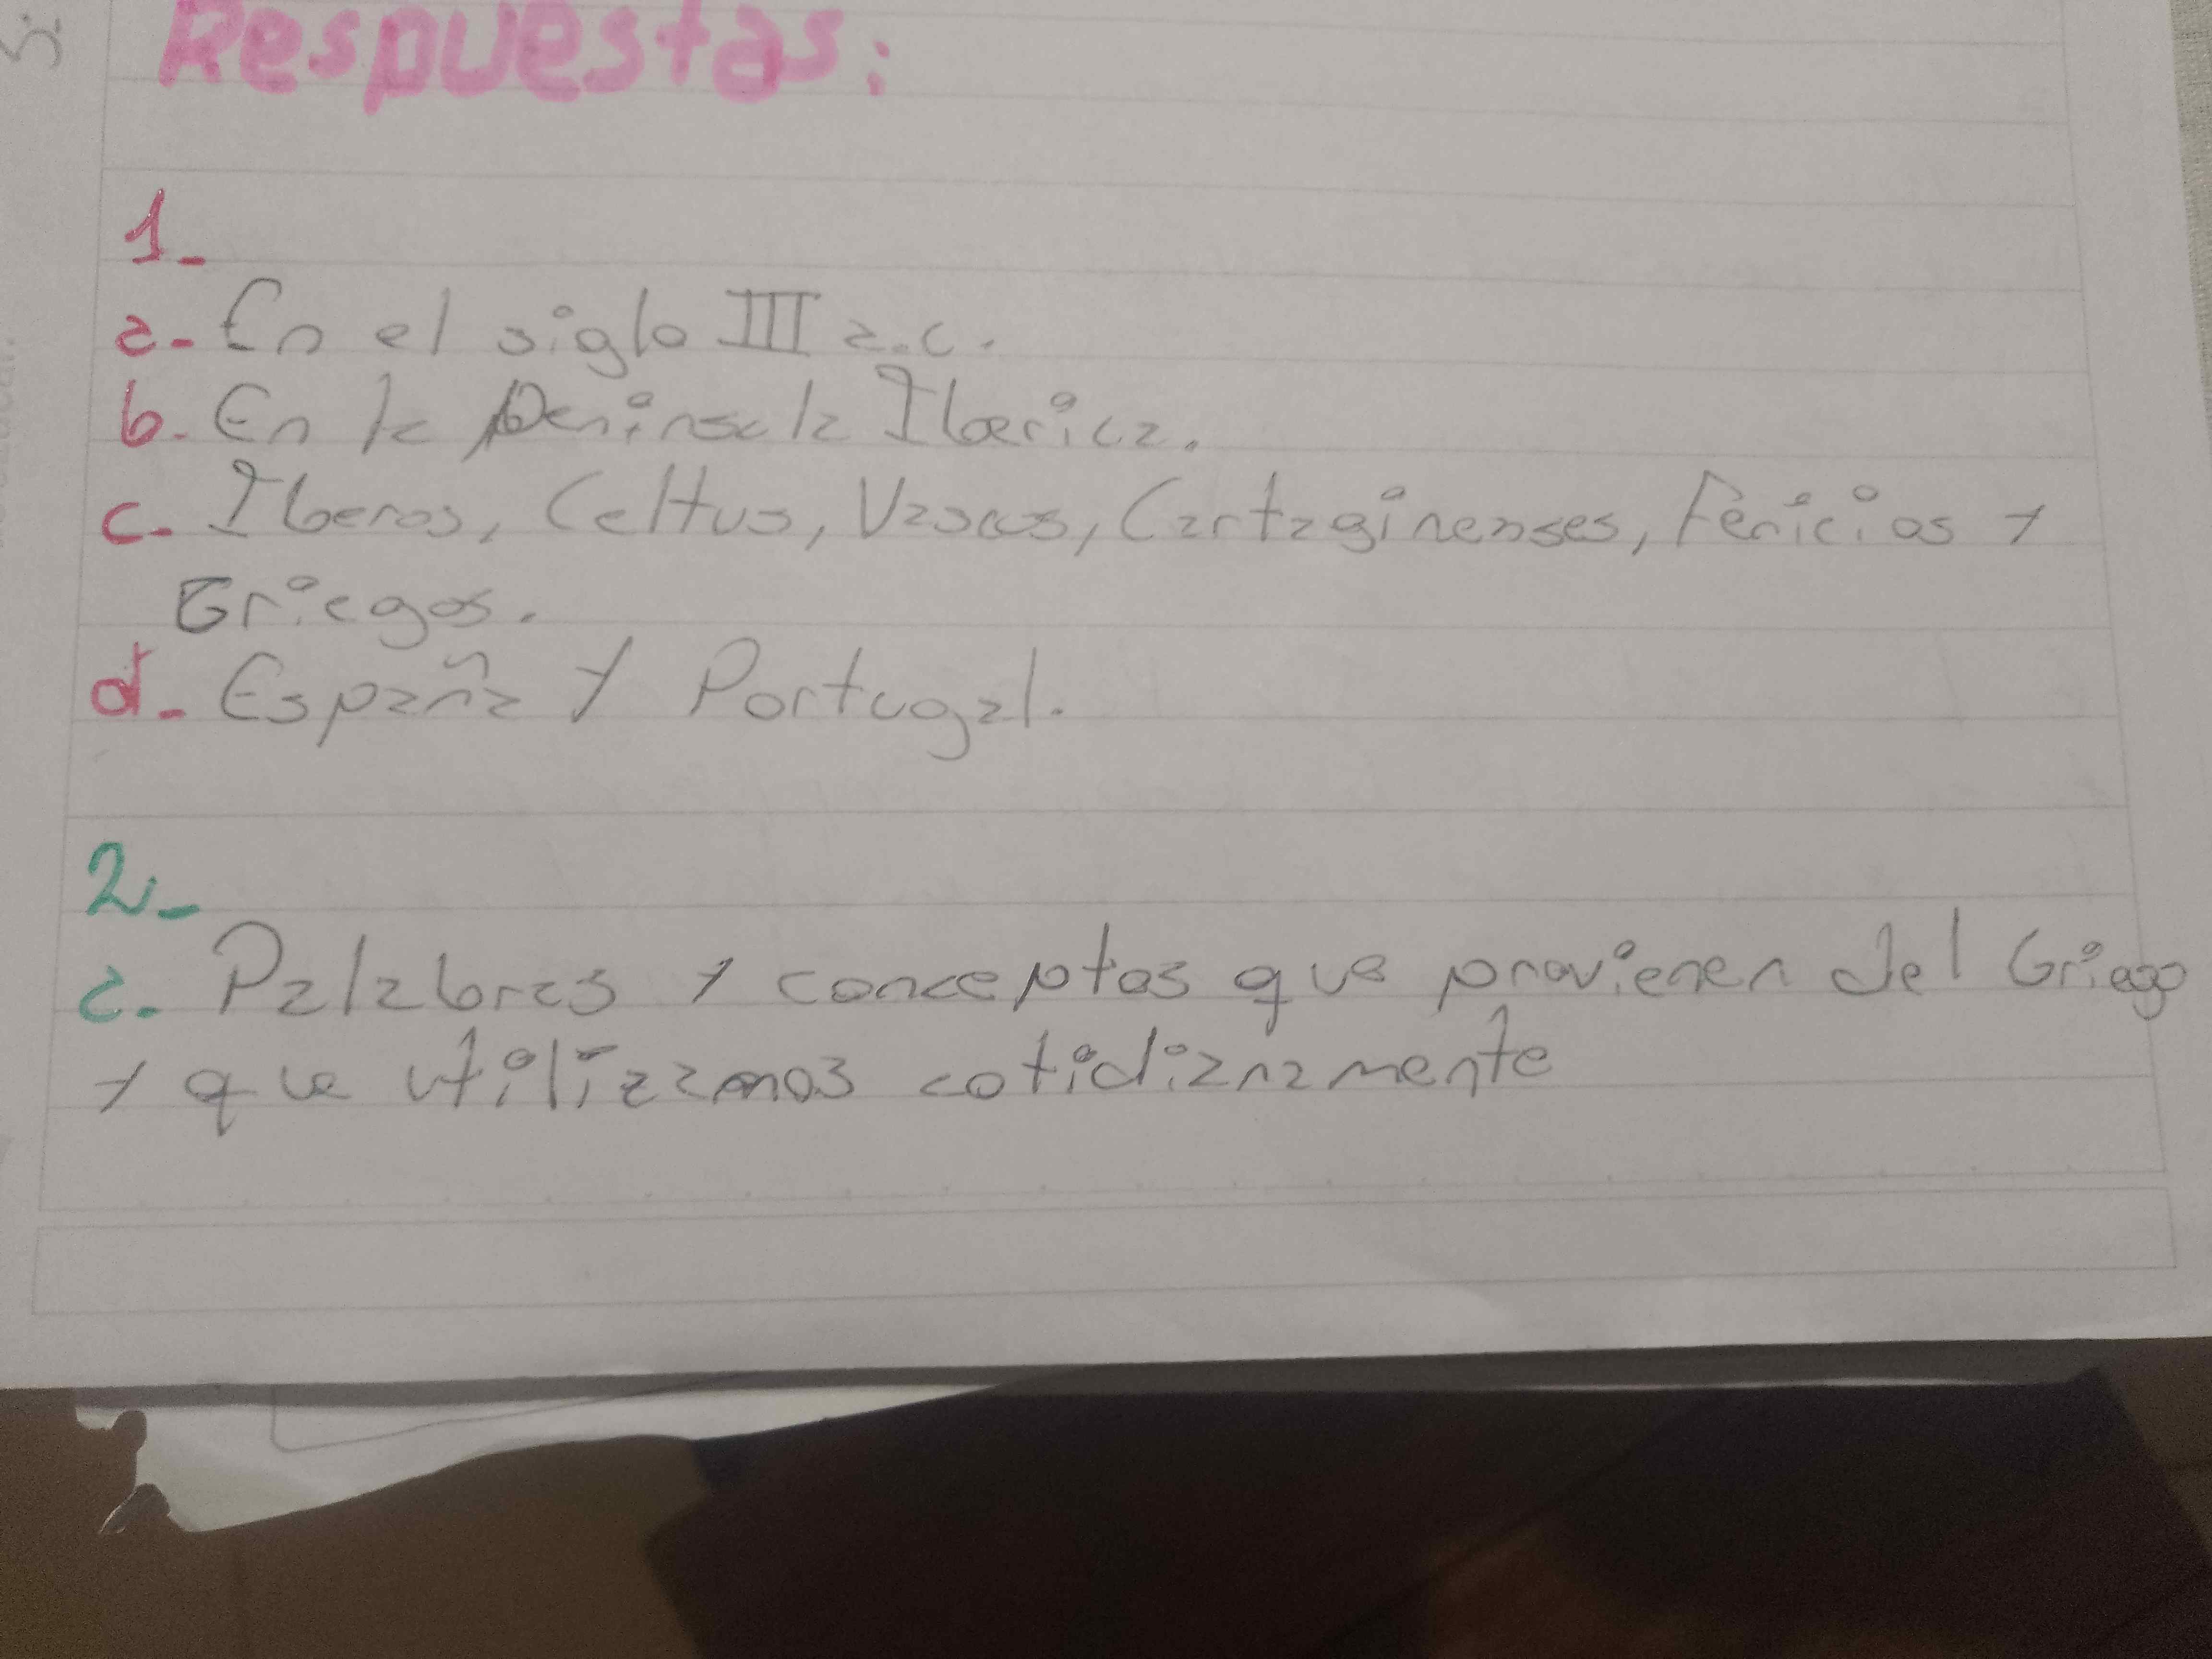 Respuestas:
1-
a- En el siglo III a.c.
b. En la peninsula Iberica.
c. Iberos, Celtus, Vascos, Cartaginenses, Fenicios y
Griegos.
d- España y Portugal.
2-
a. Palabras y conceptos que provienen del Griego
y que utilizamos cotidianamente